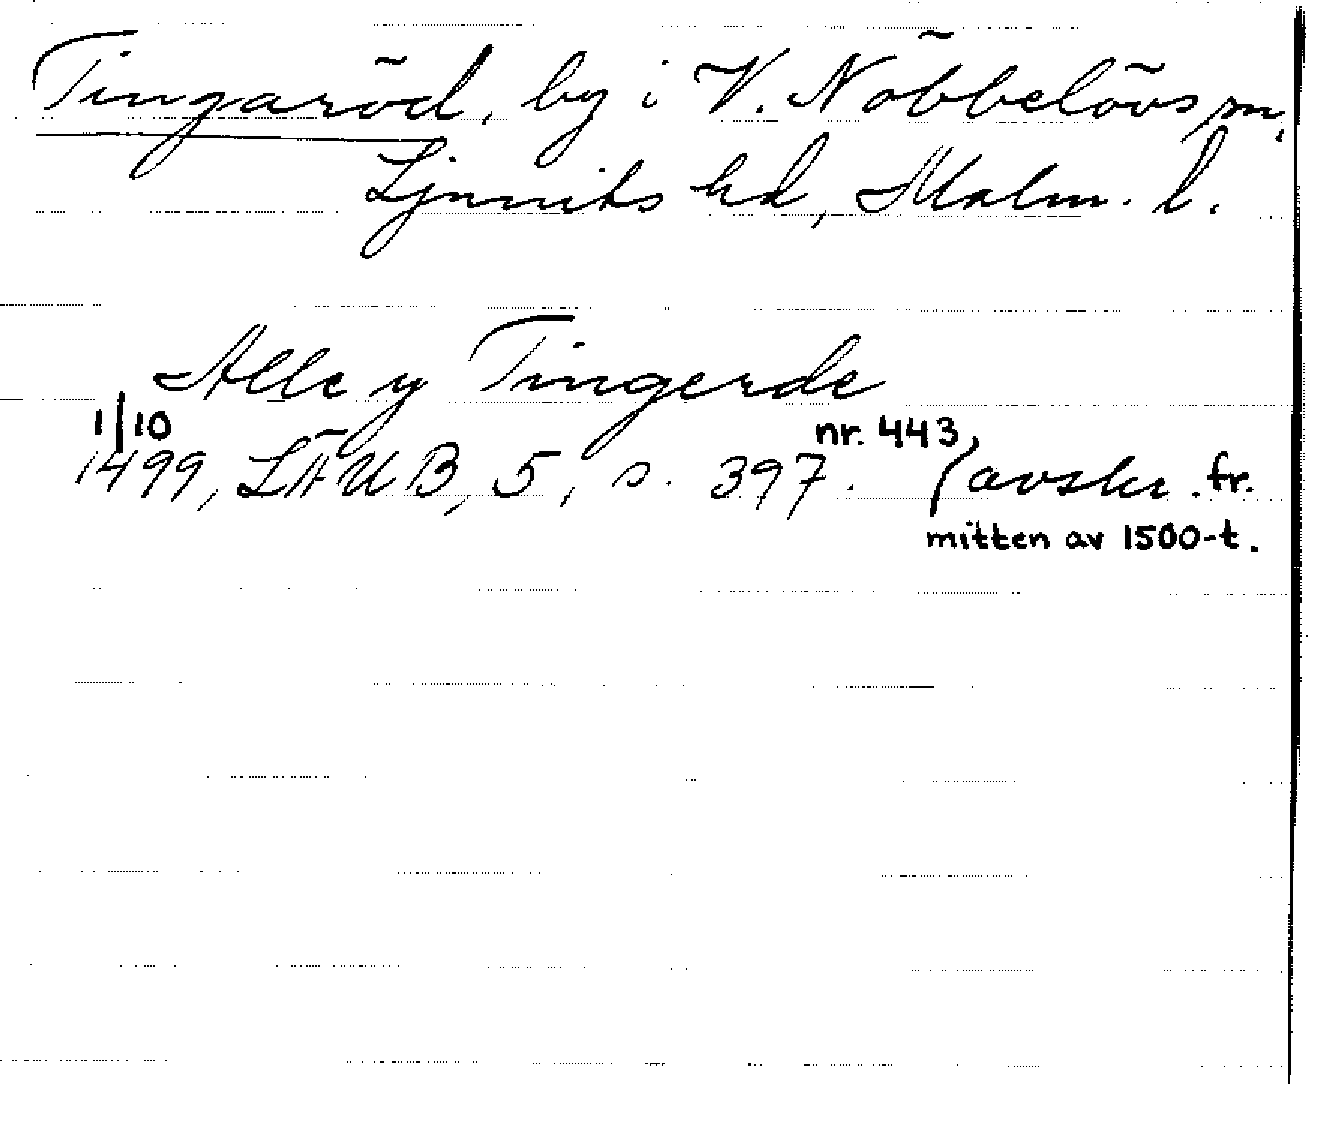 Tingaröd, by i V. Nöbbelövs sn,
Ljunits hd, Malm. l.
Alle y Tingerde
1/10 nr. 443,
1499, LÄUB, 5, s. 397. (avskr. fr.
mitten av 1500-t.